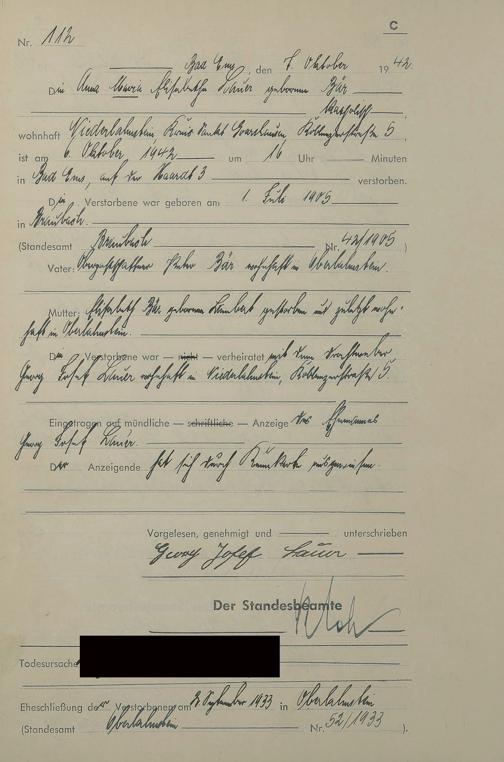 C
Nr. 112
Bad Ems, den 7. Oktober 1942
Die Anna Maria Elisabetha Lauer geborene Bär
katholisch
wohnhaft Niederlahnstein Kreis Sankt Goarshausen Koblenzerstraße 5
ist am 6. Oktober 1942 um 16 Uhr Minuten
in Bad Ems, auf der Haardt 3 verstorben.
Die Verstorbene war geboren am 1. Juli 1905
in Braubach.
(Standesamt Braubach Nr. 42/1905)
Vater: Peter Bär wohnhaft in Oberlahnstein.
Mutter: Elisabeth Bär geborene Lambert gestorben und zuletzt wohn-
haft in Oberlahnstein.
Die Verstorbene war — nicht — verheiratet mit dem
Georg Josef Lauer wohnhaft in Niederlahnstein, Koblenzerstraße 5.
Eingetragen auf mündliche — schriftliche — Anzeige des Ehemannes
Georg Josef Lauer.
Der Anzeigende hat sich durch Kennkarte ausgewiesen.
Vorgelesen, genehmigt und unterschrieben
Georg Josef Lauer
Der Standesbeamte
Todesursache
Eheschließung der Verstorbenen am September 1933 in Oberlahnstein
(Standesamt Oberlahnstein Nr. 52/1933 ).